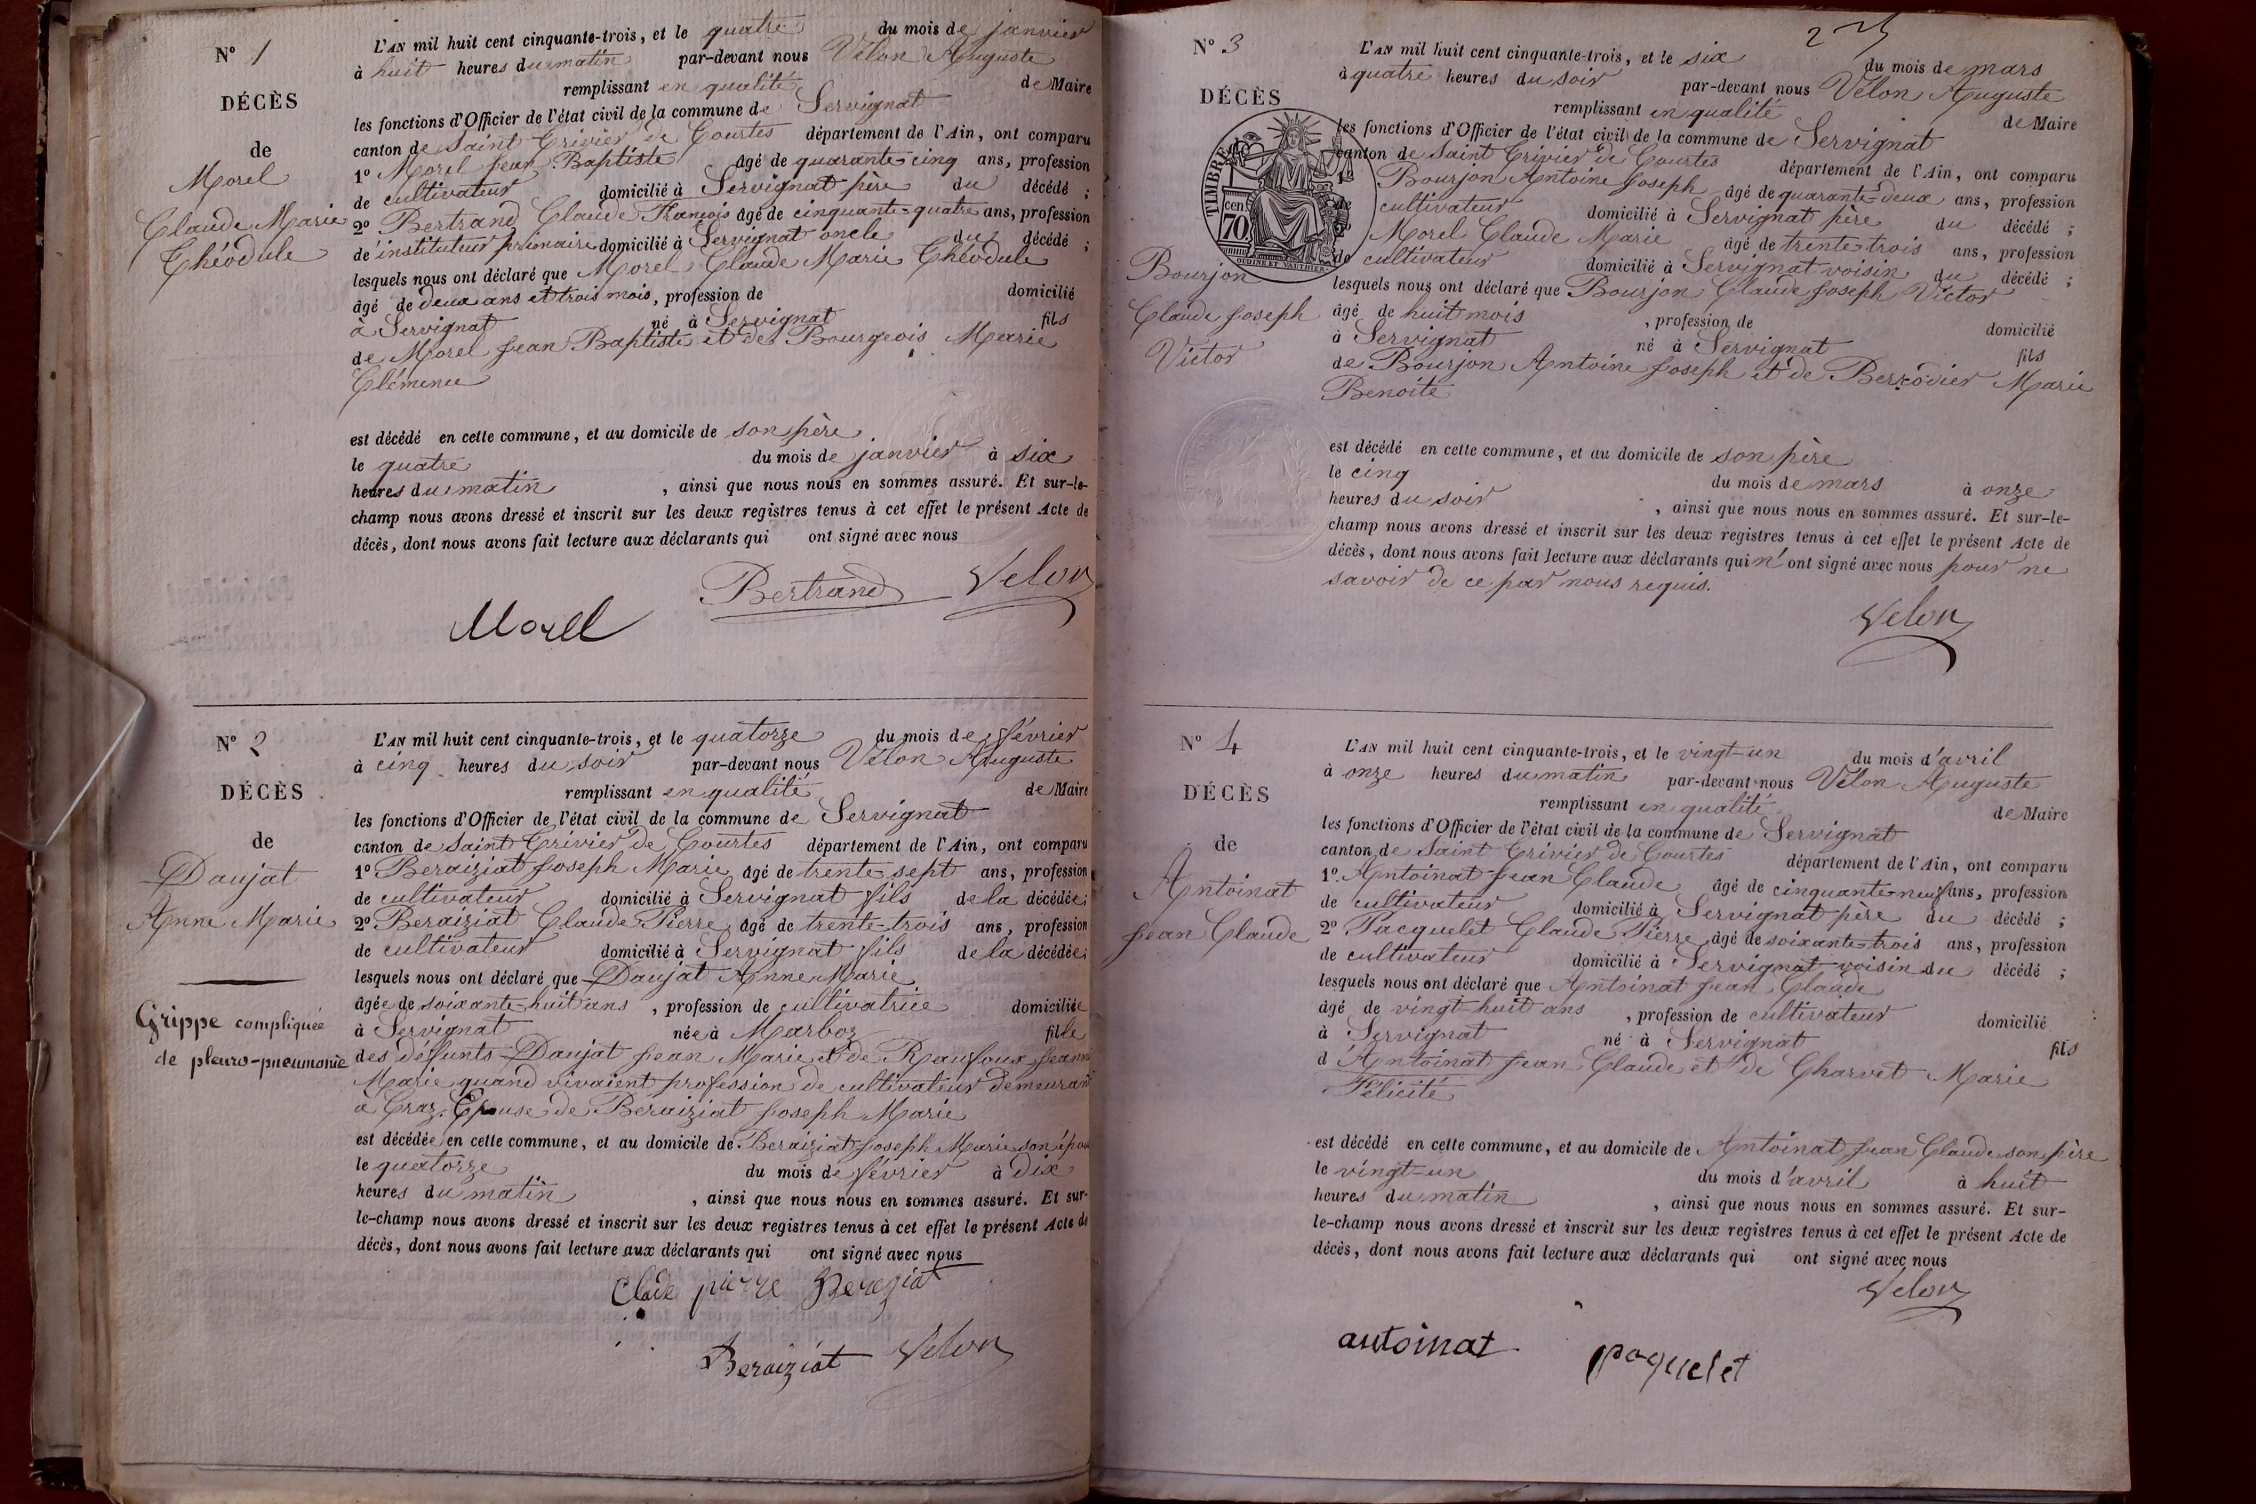 N° 1
DÉCÈS
de
Morel
Claude Marie
Théodule
L'AN mil huit cent cinquante-trois, et le quatre du mois de janvier
à huit heures du matin par-devant nous Vélon Auguste
remplissant en qualité de Maire
les fonctions d'Officier de l'état civil de la commune de Servignat
canton de Saint Trivier de Courtes département de l'Ain, ont comparu
1° Morel Jean Baptiste âgé de quarante-cinq ans, profession
de cultivateur domicilié à Servignat père du décédé ;
2° Bertrand Claude François âgé de cinquante-quatre ans, profession
de instituteur primaire domicilié à Servignat oncle du décédé ;
lesquels nous ont déclaré que Morel Claude Marie Théodule
âgé de deux ans et trois mois, profession de domicilié
à Servignat né à Servignat fils
de Morel Jean Baptiste et de Bourgeois Marie
Clémence
est décédé en cette commune, et au domicile de son père
le quatre du mois de janvier à six
heures du matin, ainsi que nous nous en sommes assuré. Et sur-le-
champ nous avons dressé et inscrit sur les deux registres tenus à cet effet le présent Acte de
décès, dont nous avons fait lecture aux déclarants qui ont signé avec nous
Bertrand Velon
Morel
N° 2
DÉCÈS
de
Daujat
Anne Marie
Grippe compliquée
de pleuro-pneumonie
L'AN mil huit cent cinquante-trois, et le quatorze du mois de février
à cinq heures du soir par-devant nous Vélon Auguste
remplissant en qualité de Maire
les fonctions d'Officier de l'état civil de la commune de Servignat
canton de Saint Trivier de Courtes département de l'Ain, ont comparu
1° Beraiziat Joseph Marie âgé de trente-sept ans, profession
de cultivateur domicilié à Servignat fils de la décédée;
2° Beraiziat Claude Pierre âgé de trente-trois ans, profession
de cultivateur domicilié à Servignat fils de la décédée;
lesquels nous ont déclaré que Daujat Anne Marie
âgée de soixante-huit ans, profession de cultivatrice domiciliée
à Servignat née à Marboz fille
des défunts Daujat Jean Marie et de Raufoux Jeanne
Marie quand vivaient profession de cultivateur demeurant
à Craz. Epouse de Beraiziat Joseph Marie
est décédée en cette commune, et au domicile de Beraiziat Joseph Marie son époux
le quatorze du mois de février à dix
heures du matin, ainsi que nous nous en sommes assuré. Et sur-
le-champ nous avons dressé et inscrit sur les deux registres tenus à cet effet le présent Acte de
décès, dont nous avons fait lecture aux déclarants qui ont signé avec nous
Clade pierre Beraziat
Beraiziat Velon
N° 3
DÉCÈS
TIMBRE
cen
70
OUDINE ET VAUTHIER
Bourjon
Claude Joseph
Victor
L'AN mil huit cent cinquante-trois, et le six du mois de mars
à quatre heures du soir par-devant nous Vélon Auguste
remplissant en qualité de Maire
les fonctions d'Officier de l'état civil de la commune de Servignat
canton de Saint Trivier de Courtes département de l'Ain, ont comparu
Bourjon Antoine Joseph âgé de quarante-deux ans, profession
de cultivateur domicilié à Servignat père du décédé ;
Morel Claude Marie âgé de trente-trois ans, profession
de cultivateur domicilié à Servignat voisin du décédé ;
lesquels nous ont déclaré que Bourjon Claude Joseph Victor
âgé de huit mois, profession de domicilié
à Servignat né à Servignat fils
de Bourjon Antoine Joseph et de Berrodier Marie
Benoite
est décédé en cette commune, et au domicile de son père
le cinq du mois de mars à onze
heures du soir, ainsi que nous nous en sommes assuré. Et sur-le-
champ nous avons dressé et inscrit sur les deux registres tenus à cet effet le présent Acte de
décès, dont nous avons fait lecture aux déclarants qui n'ont signé avec nous pour ne
savoir de ce par nous requis.
Velon
N° 4
DÉCÈS
de
Antoinat
Jean Claude
L'AN mil huit cent cinquante-trois, et le vingt-un du mois d'avril
à onze heures du matin par-devant nous Vélon Auguste
remplissant en qualité de Maire
les fonctions d'Officier de l'état civil de la commune de Servignat
canton de Saint Trivier de Courtes département de l'Ain, ont comparu
1° Antoinat Jean Claude âgé de cinquante-neuf ans, profession
de cultivateur domicilié à Servignat père du décédé ;
2° Pacquelet Claude Pierre âgé de soixante-trois ans, profession
de cultivateur domicilié à Servignat voisin du décédé ;
lesquels nous ont déclaré que Antoinat Jean Claude
âgé de vingt-huit ans, profession de cultivateur domicilié
à Servignat né à Servignat fils
d Antoinat Jean Claude et de Charvet Marie
Félicité
est décédé en cette commune, et au domicile de Antoinat Jean Claude son père
le vingt-un du mois d'avril à huit
heures du matin, ainsi que nous nous en sommes assuré. Et sur-
le-champ nous avons dressé et inscrit sur les deux registres tenus à cet effet le présent Acte de
décès, dont nous avons fait lecture aux déclarants qui ont signé avec nous
Velon
antoinat paquelet